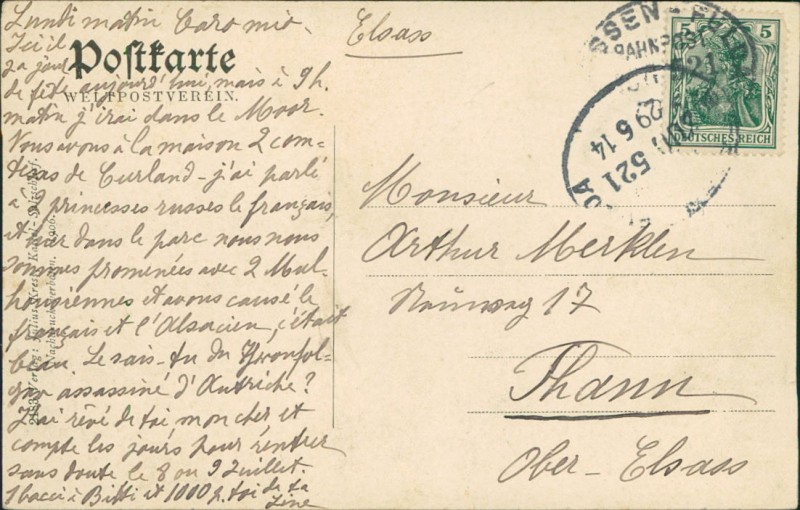 Lundi matin Caro mio.
Elsass
Ici il
y a jour
de fête aujourd'hui, mais à 9h.
Postkarte
WELTPOSTVEREIN.
matin j'irai dans le Moor.
Nous avons à la maison 2 com-
tesses de Curland - j'ai parlé
à 2 princesses russes le français,
et hier dans le parc nous nous
sommes promenées avec 2 Mul-
housiennes et avons causé le
français et l'Alsacien, c'était
beau. Le sais-tu du Thronfol-
ger assassiné d'Autriche?
J'ai rêvé de toi mon cher et
compte les jours pour rentrer
sans doute le 8 ou 9 Juillet.
1 bacci à Bitti et 1000 p. toi de ta
Line
Verlag: Julius
1906.
SSEN - FULDA
BAHNPOST
521
29 6 14
5 5
DEUTSCHES REICH
Monsieur
Arthur Merklen
17
Thann
Ober-Elsass